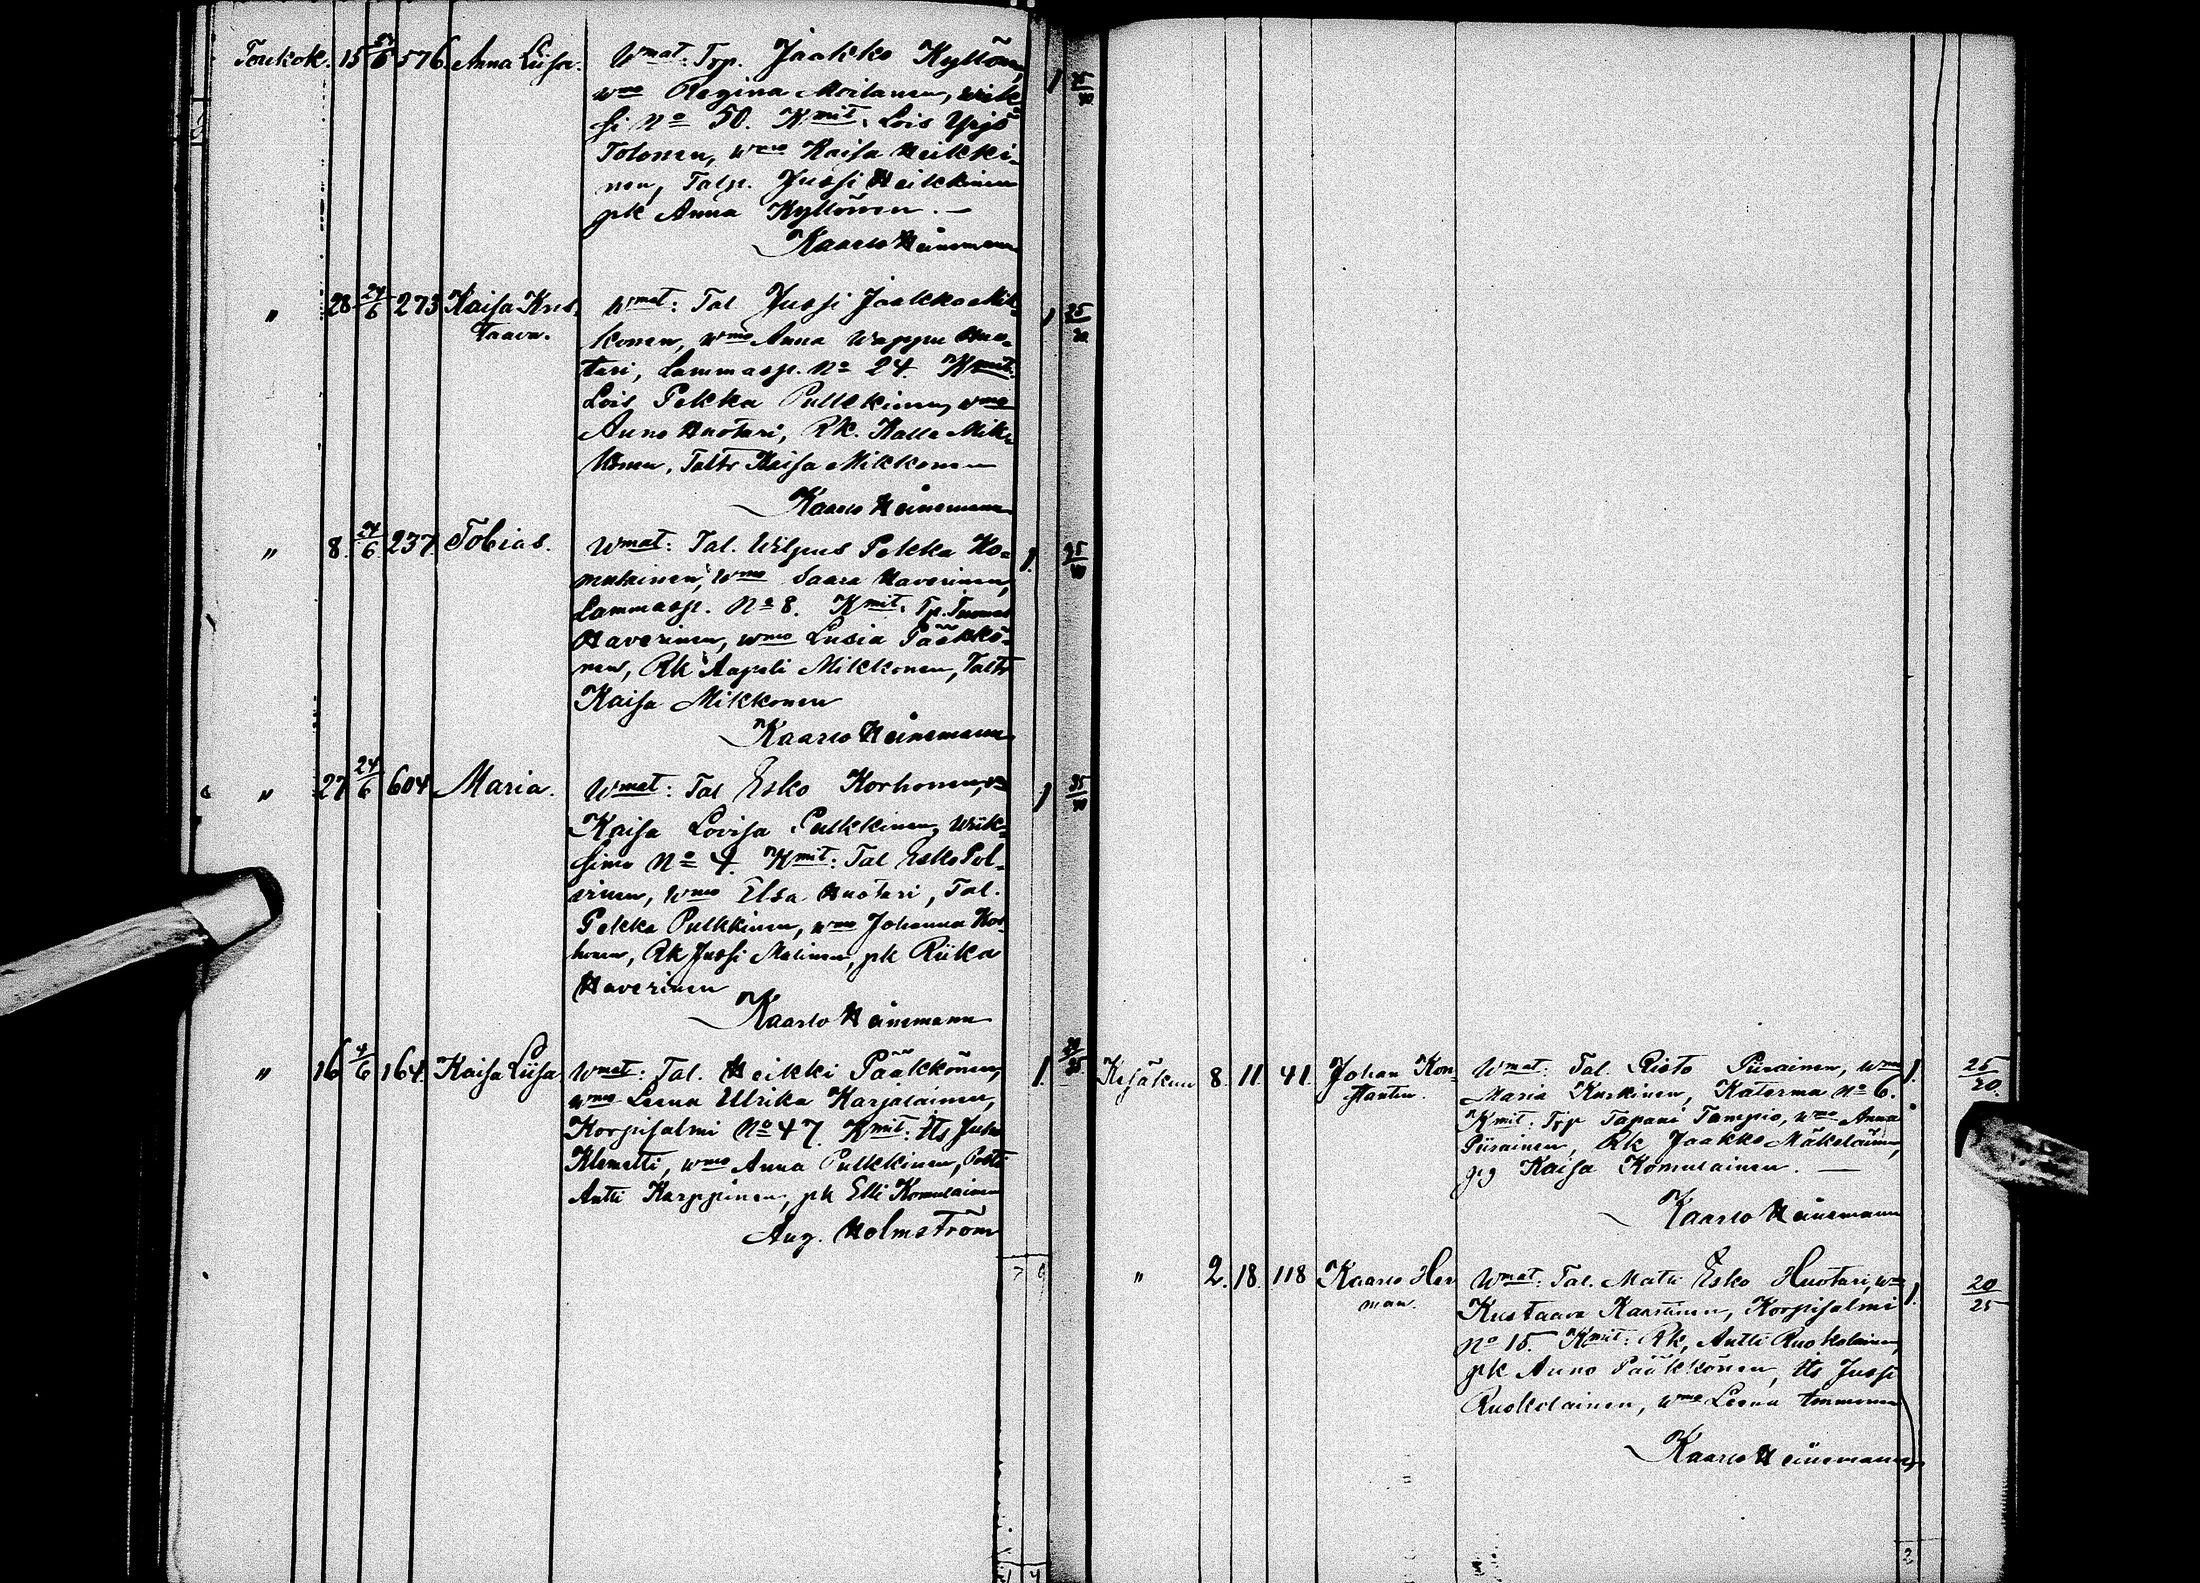 Toukok. 15 24/6 576. Anna Liisa. Wmat: Trp. Jaakko Kyllönen, 1 25/30
wmo Regina Moilanen, Wiik-
si No 50. Kmit: Lois Yrjö
Tolonen, wmo Kaisa Heikki-
nen, Talp. Jussi Heikkinen
pk Anna Kyllönen. —
Kaarlo Heinemann
" 28 24/6 273 Kaisa Kus- Wmat: Tal Jussi Jaakko Mik- 1 25/30
taava. konen, wmo Anna Wappu Huo-
tari, Lammasp. No 24. Kmit:
Lois Pekka Pulkkinen, wmo
Anna Huotari, Rk. Kalle Mik-
konen, Taltr Kaisa Mikkonen
Kaarlo Heinemann
" 8. 24/6 237 Tobias. Wmat: Tal. Wilpus Pekka Ko- 1. 35/40
mulainen, Wmo Saara Haverinen,
Lammasp. No 8. Kmit: Tp. Tuomas
Haverinen, wmo Lusia Pääkkö-
nen, Rk Aapeli Mikkonen, Taltr
Kaisa Mikkonen
Kaarlo Heinemann
" 27 24/6 604 Maria. Wmat: Tal Esko Korhonen, 1 35/40
Kaisa Lovisa Pulkkinen, Wiik-
simo No 4. Kmit: Tal Esko Pol-
vinen, wmo Elsa Huotari, Tal.
Pekka Pulkkinen, wmo Johanna Kor-
honen, Rk Jussi Malinen, pk Riika
Haverinen
Kaarlo Heinemann
" 16 4/6 164. Kaisa Liisa Wmat: Tal. Heikki Pääkkönen, 1.
wmo Leena Ulrika Karjalainen,
Korpisalmi No 47. Kmit: Its Juho
Klemetti, wmo Anna Pulkkinen,
Antti Karppinen, pk Elli Komulainen
Aug. Holmström
Kesäkuu 8. 11. 41. Johan Kon- Wmat: Tal. Risto Piirainen, Wmo 1. 25/20.
stantin. Maria Kaskinen, Katerma No 6.
Kmit: Trp Tapani Tampio, wmo Anna
Piirainen, Rk Jaakko Mäkeläinen,
pg Kaisa Komulainen. —
Kaarlo Heinemann
" 2. 18. 118 Kaarlo Her- Wmat: Tal. Matti Esko Huotari, wmo 1. 20/25
man. Kustaava Kaartinen, Korpisalmi
No 15. Kmit: Rk, Antti Ruokolainen,
pk Anna Pääkkönen, Its Jussi
Ruokolainen, wmo Leena Ammonen
Kaarlo Heinemann
2